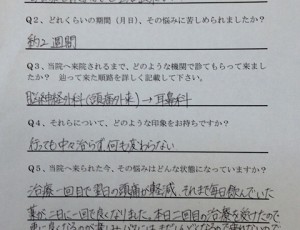 Q2、どれくらいの期間(月日)、その悩みに苦しめられましたか?
約2週間
Q3、当院へ来院されるまで、どのような機関で診てもらって来ましたか? 辿って来た順路を詳しく記載して下さい。
脳神経外科(頭痛外来)→耳鼻科
Q4、それらについて、どのような印象をお持ちですか?
行っても中々治らず何も変わらない
Q5、当院へ来られた今、その悩みはどんな状態になっていますか?
治療一回目で翌日の頭痛が軽減、それまで毎日飲んでいた
薬が二日に一回で良くなりました。本日二回目の治療を受けたので